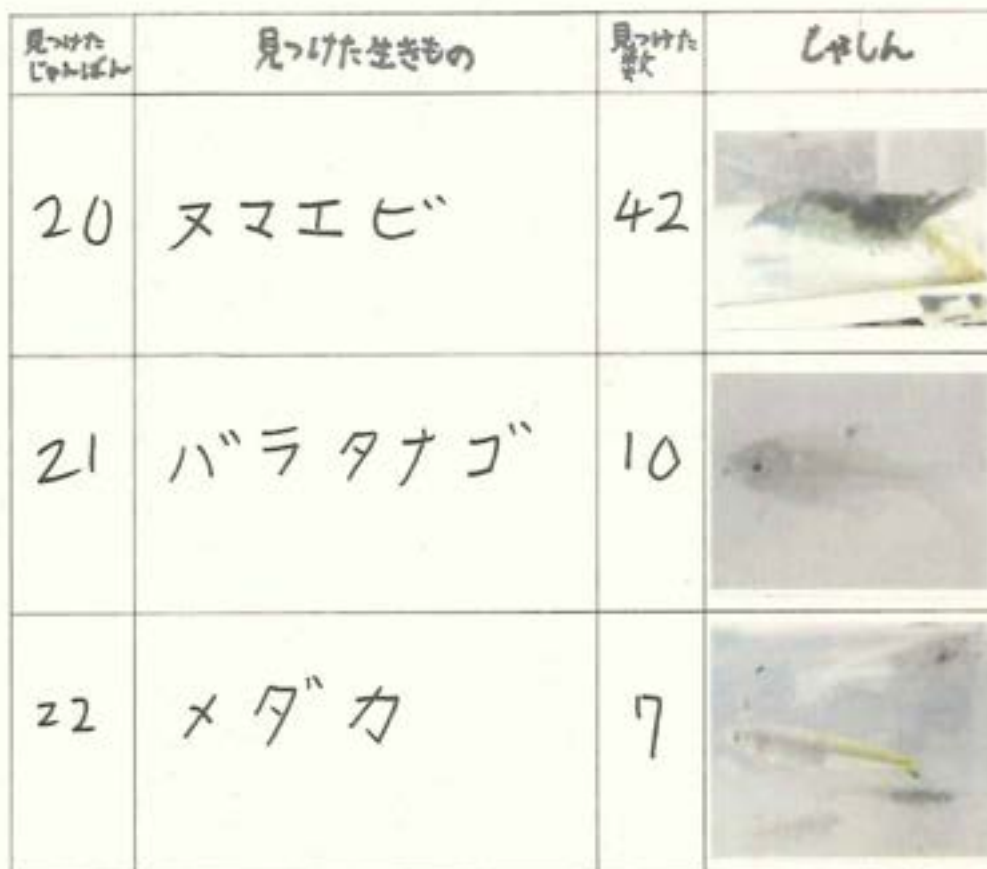 見つけた
じゅんばん
見つけた生きもの
見つけた
数
しゃしん
20 ヌマエビ 42
21 バラタナゴ 10
22 メダカ 7